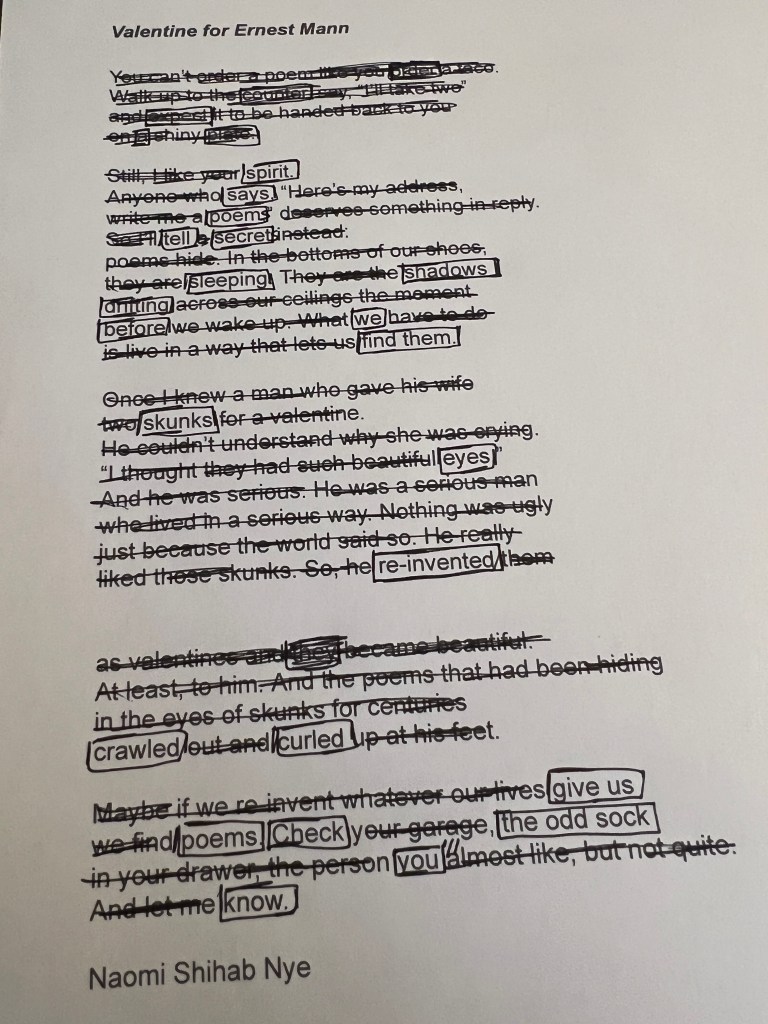 Valentine for Ernest Mann
You can't order a poem like you order a taco.
Walk up to the counter, say, "I'll take two"
and expect it to be handed back to you
on a shiny plate.
Still, I like your spirit.
Anyone who says, "Here's my address,
write me a poem," deserves something in reply.
So I'll tell a secret instead:
poems hide. In the bottoms of our shoes,
they are sleeping. They are the shadows
drifting across our ceilings the moment
before we wake up. What we have to do
is live in a way that lets us find them.
Once I knew a man who gave his wife
two skunks for a valentine.
He couldn't understand why she was crying.
"I thought they had such beautiful eyes."
And he was serious. He was a serious man
who lived in a serious way. Nothing was ugly
just because the world said so. He really
liked those skunks. So, he re-invented them
as valentines and they became beautiful.
At least, to him. And the poems that had been hiding
in the eyes of skunks for centuries
crawled out and curled up at his feet.
Maybe if we re-invent whatever our lives give us
we find poems. Check your garage, the odd sock
in your drawer, the person you almost like, but not quite.
And let me know.
Naomi Shihab Nye